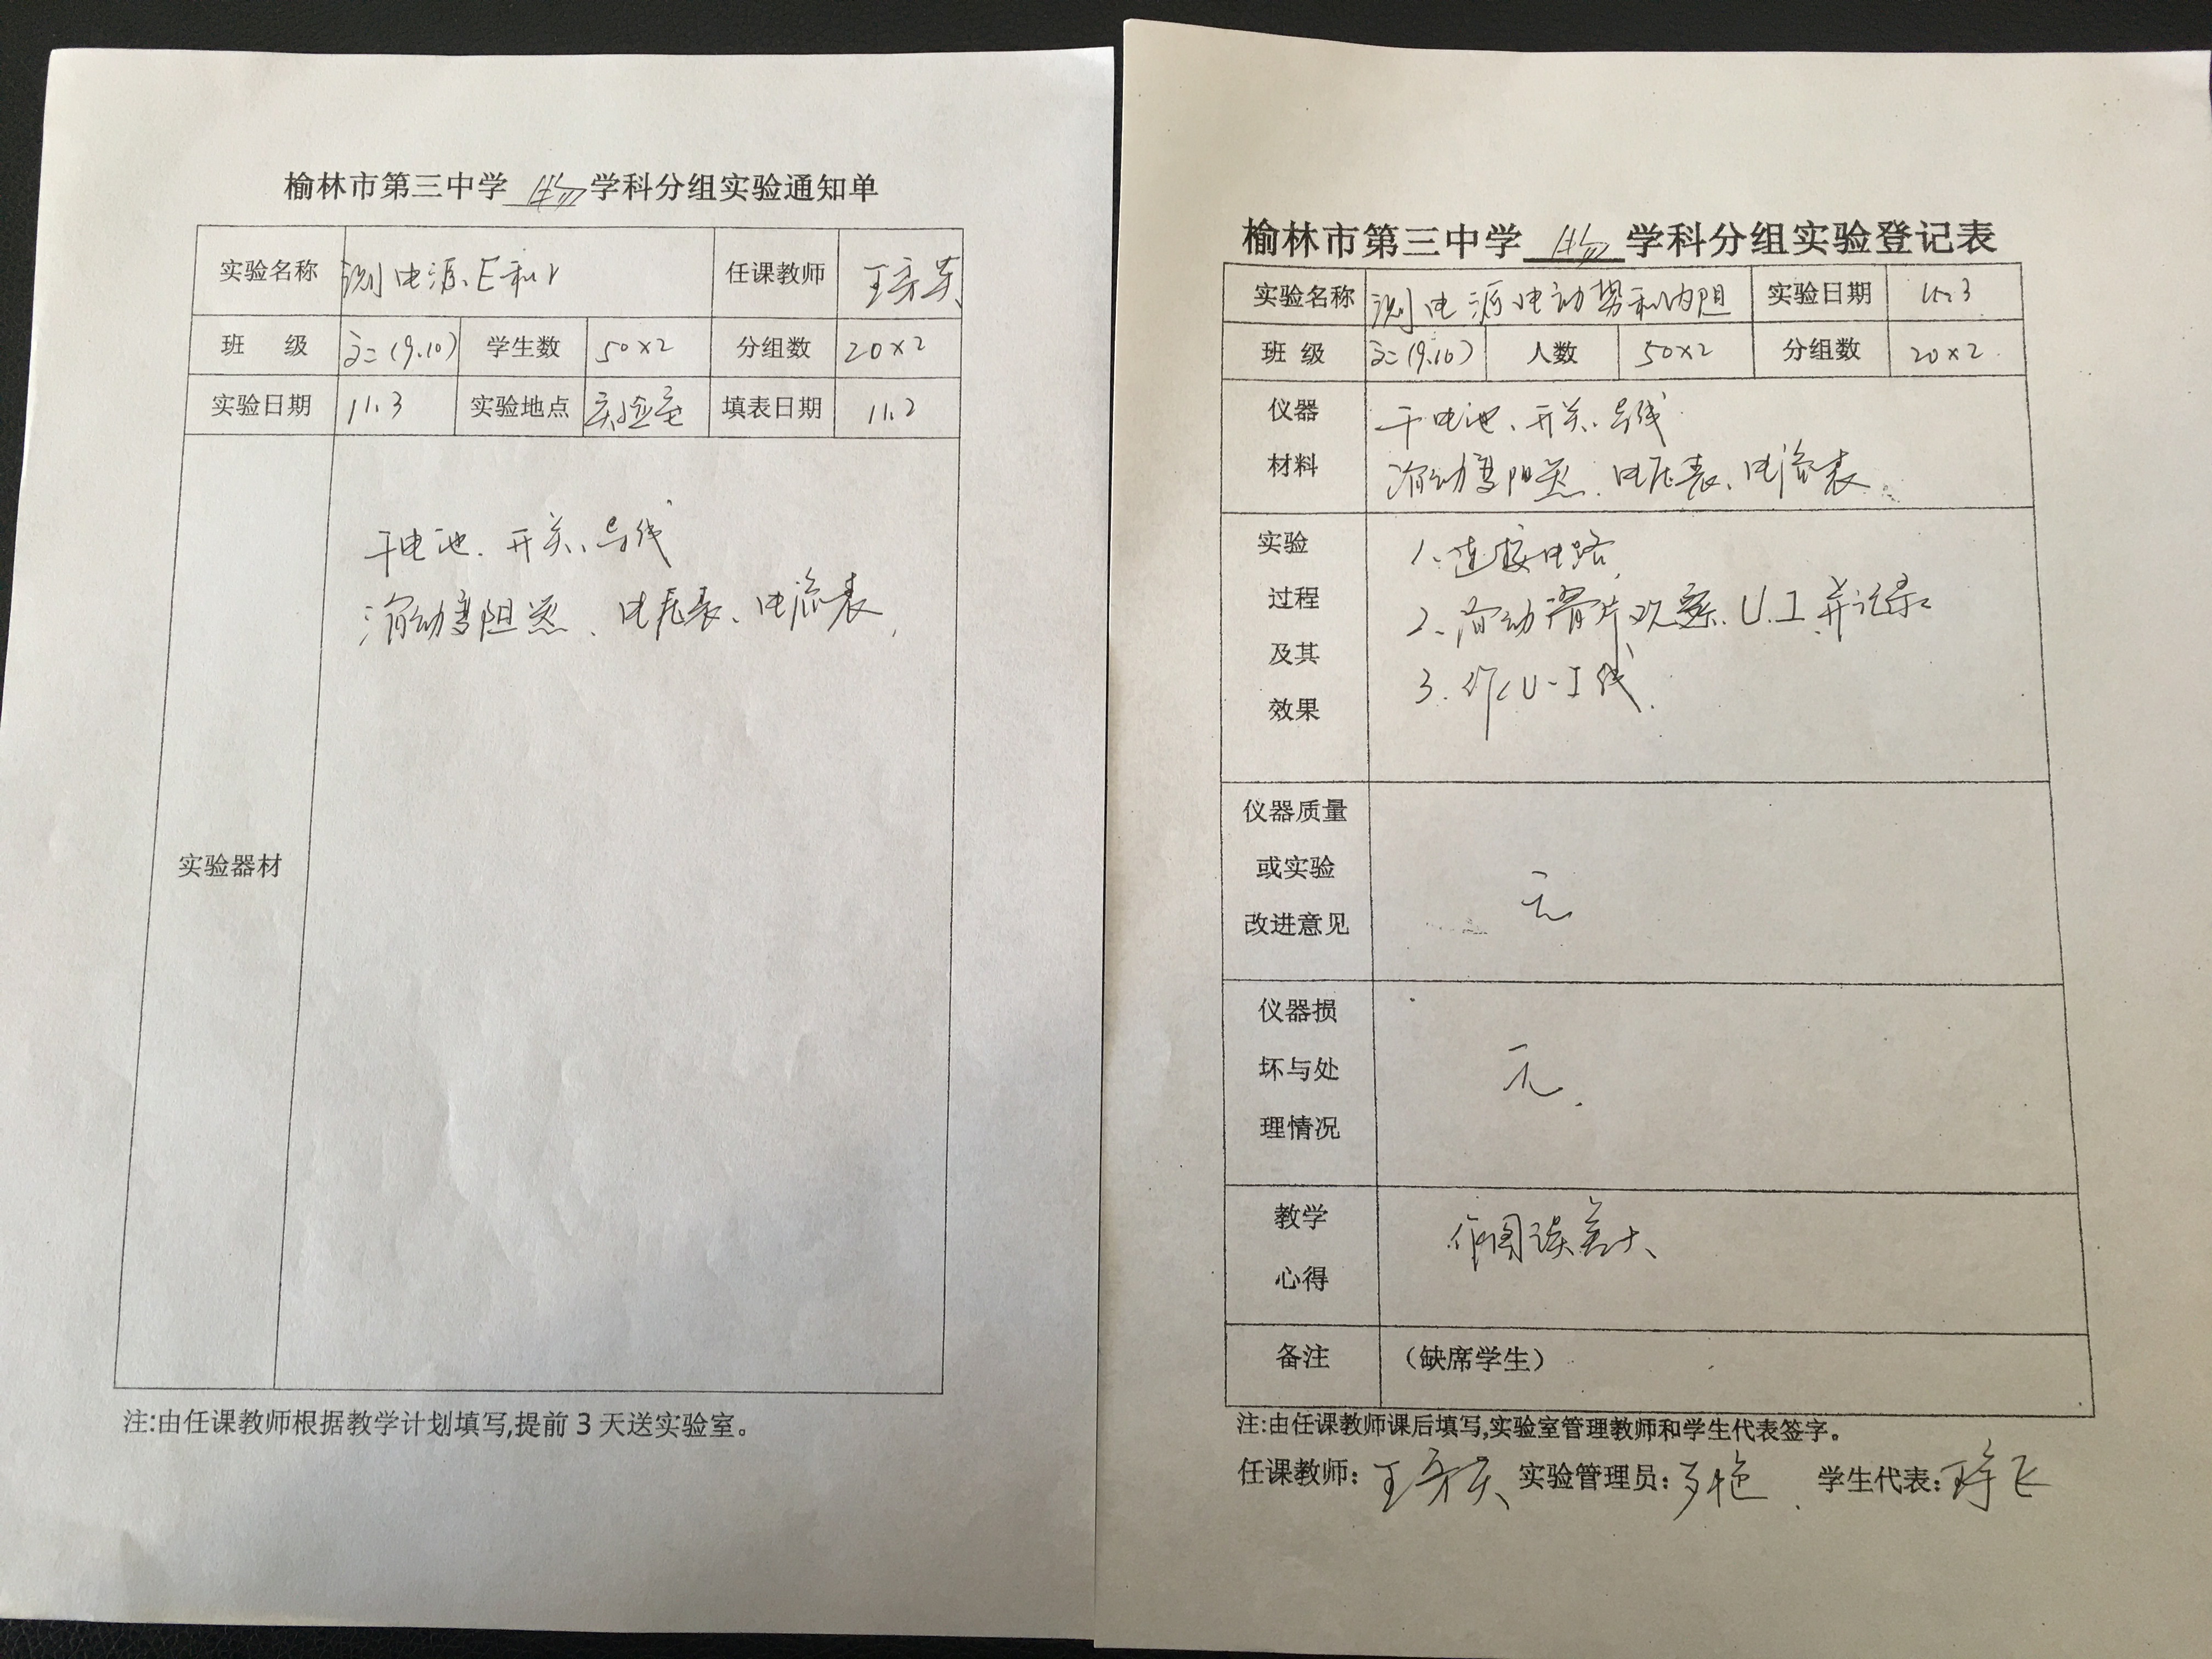 榆林市第三中学 物 学科分组实验通知单
实验名称 测电源E和r 任课教师
班 级 高二(9.10) 学生数 50×2 分组数 20×2
实验日期 11.3 实验地点 实验室 填表日期 11.2
实验器材
干电池、开关、导线
滑动变阻器、电压表、电流表
注:由任课教师根据教学计划填写,提前3天送实验室。
榆林市第三中学 物 学科分组实验登记表
实验名称 测电源电动势和内阻 实验日期 11.3
班 级 高二(9.10) 人数 50×2 分组数 20×2
仪器
材料
干电池、开关、导线
滑动变阻器、电压表、电流表
实验
过程
及其
效果
1、连接电路
2、滑动滑片观察U.I并记录
3.作U-I线.
仪器质量
或实验
改进意见
无
仪器损
坏与处
理情况
无.
教学
心得
作图误差大、
备注 (缺席学生)
注:由任课教师课后填写,实验室管理教师和学生代表签字。
任课教师: 实验管理员: 学生代表: